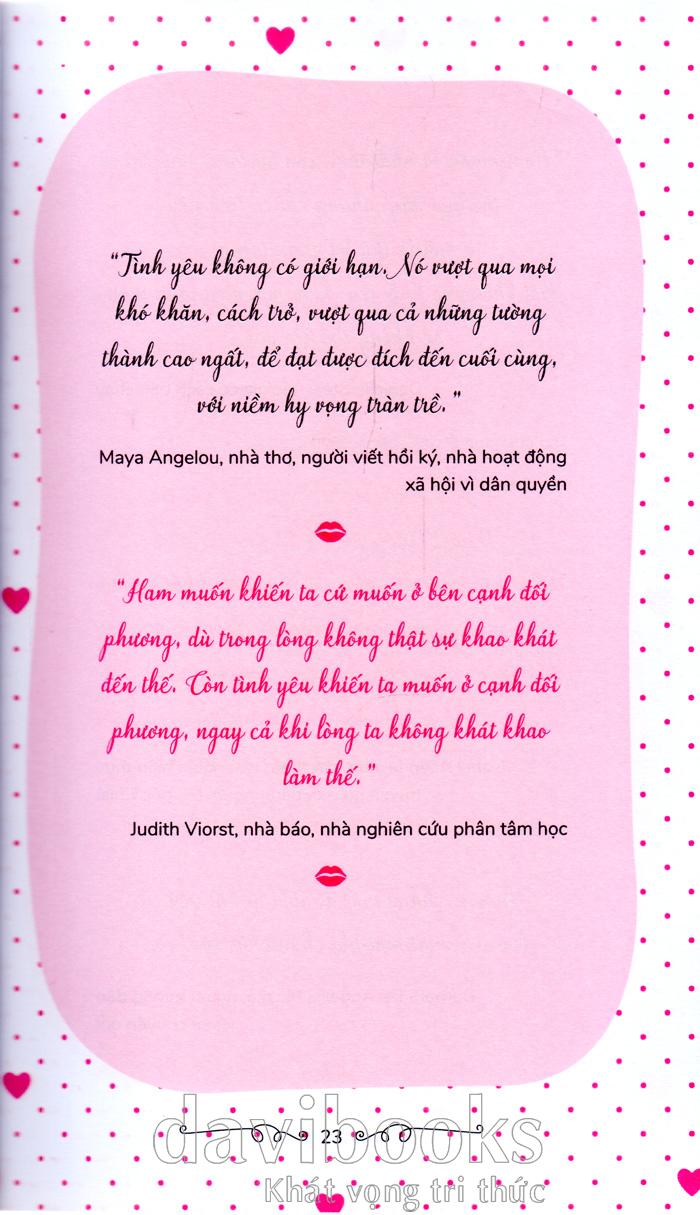 “Tình yêu không có giới hạn. Nó vượt qua mọi
khó khăn, cách trở, vượt qua cả những tường
thành cao ngất, để đạt được đích đến cuối cùng,
với niềm hy vọng tràn trề.”
Maya Angelou, nhà thơ, người viết hồi ký, nhà hoạt động
xã hội vì dân quyền
“Ham muốn khiến ta cứ muốn ở bên cạnh đối
phương, dù trong lòng không thật sự khao khát
đến thế. Còn tình yêu khiến ta muốn ở cạnh đối
phương, ngay cả khi lòng ta không khát khao
làm thế.”
Judith Viorst, nhà báo, nhà nghiên cứu phân tâm học
davibooks
23
Khát vọng tri thức